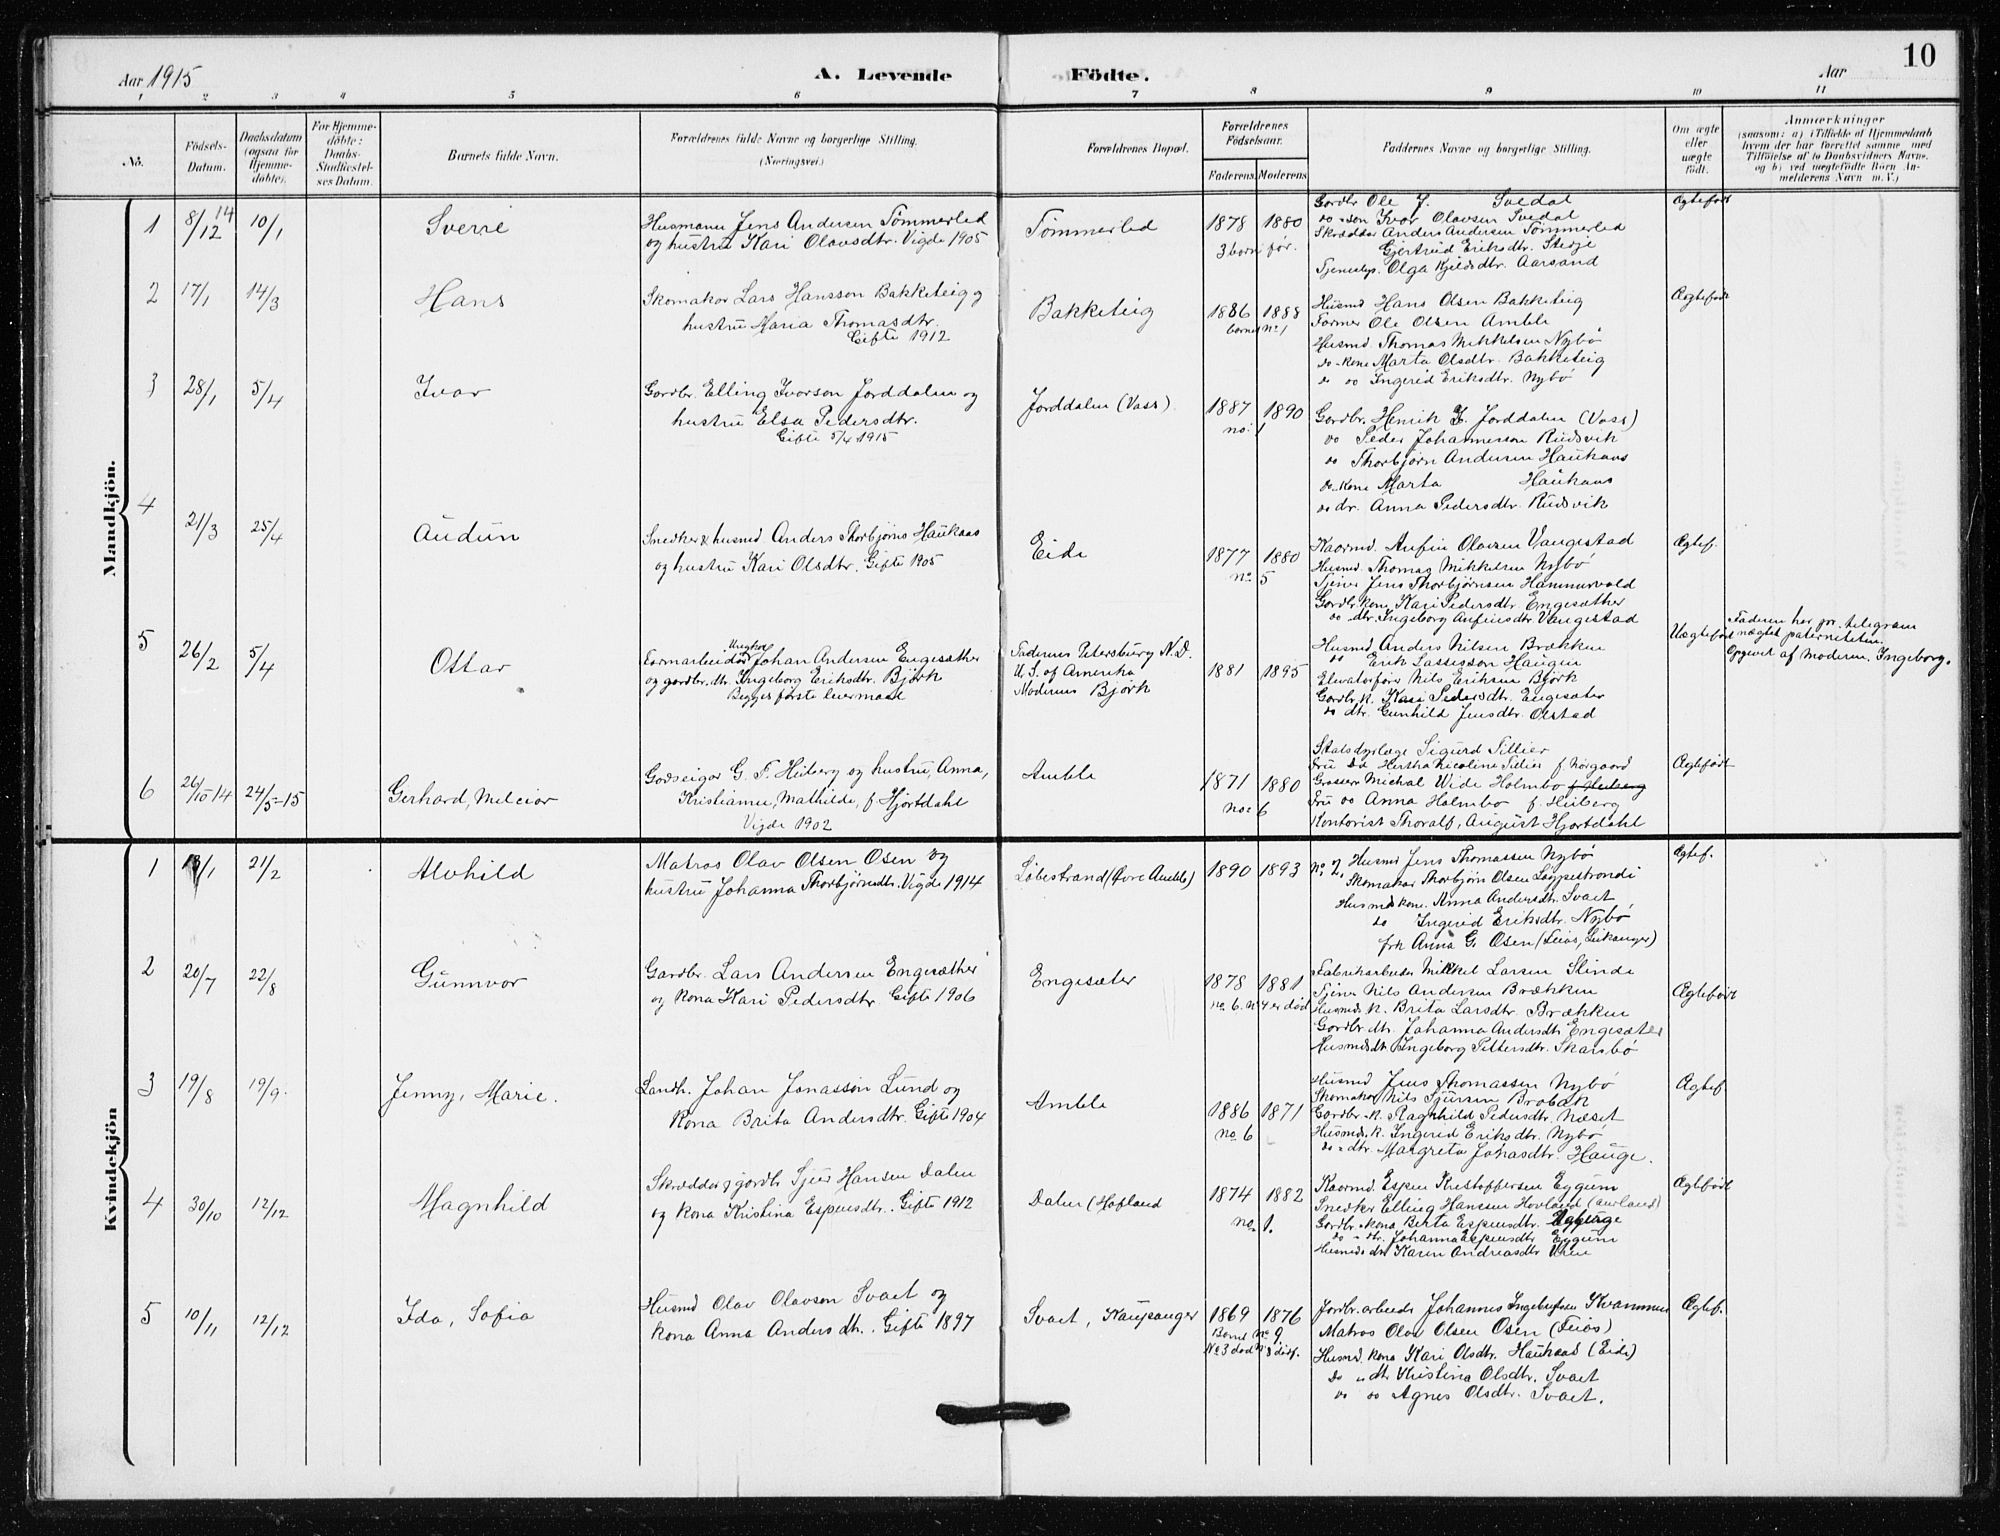 10
Aar 1915
A. Levende
Födte.
Aar
1 2 3 4 5 6 7 8 9 10 11
No.
Födsels-Datum.
Daabsdatum (ogsaa for Hjemme-döbte).
For Hjemme-döbte: Daabs-Stadfæstel-ses Datum.
Barnets fulde Navn.
Forældrenes fulde Navne og borgerlige Stilling.
(Næringsvei.)
Forældrenes Bopæl.
Forældrenes Födselsaar.
Faderens. Moderens.
Faddernes Navne og borgerlige Stilling.
Om ægte eller uægte födt.
Anmærkninger
(saasom: a) i Tilfælde af Hjemmedaab
hvem der har forrettet samme, med
Tilföielse af to Daabsvidners Navne,
og b) ved uægtefödte Börn An-
melderens Navn m. V.)
Mandkjön.
1 8/12 14 10/1 Sverre
Husmann Jens Andersen Tømmerled
og hustru Kari Olavsdtr. Vigde 1905
Tømmerled
1878 1880
3 born før.
Gordbr Ole J. Svedal
do -son Ivar Olavsen Svedal
Skrædder Anders Andersen Tømmerled
Gjertrud Eriksdtr. Stedje
Tjenestep. Olga Kjeldsdtr. Aarsand
Ægtefødt
2 17/1 14/3 Hans
Skomakar Lars Hansson Bakketeig og
hustru Maria Thomasdtr.
Gifte 1912
Bakketeig
1886 1888
barnet no. 1
Husmd Hans Olsen Bakketeig
Farmer Ole Olsen Amble
Husmd. Thomas Mikkelsen Nybø
do -kone Marta Olsdtr. Bakketeig
do do Ingerid Eriksdtr. Nybø
Ægtefødt
3 28/1 5/4 Ivar
Gardbr. Elling Ivarson Jorddalen og
hustru Elsa Pedersdtr.
Gifte 5/4 1915
Jorddalen (Vass).
1887 1890
no: 1
Gordbr. Henrik E. Jorddalen (Voss)
do Peder Johannesson Rudsvik
do Thorbjørn Andersen Haukaas
do -kone Marta Haukaas
do dr. Anna Pedersdtr. Rudsvik
4 21/3 25/4 Audun
Snedker & husmd Anders Thorbjørns Haukaas
og hustru Kari Olsdtr. Gifte 1905
Eide
1877 1880
no. 5
Kaarmd. Anfin Olavsen Vangestad
Husmd. Thomas Mikkelsen Nybø
Tjener Jens Thorbjørnsen Hammervold
Gordbr. kone Kari Pedersdtr. Engesæther
do dtr. Ingeborg Anfinsdtr Vangestad
Ægtef.
5 26/2 5/4 Ottar
Ungkar
Farmarbeider Johan Andersen Engesæther
og gardbr. dtr. Ingeborg Eriksdtr. Bjørk
Begges første leiermaal
Faderens Petersburg N.D.
U.S. of Amerika
Moderens Bjørk
1881 1895
Husmd Anders Nilsen Brækken
do Erik Lassesson Haugen
Elevatorfører Nils Eriksen Bjørk
Gordbr. k. Kari Pedersdtr. Engesæter
do dtr. Gunhild Jensdtr. Olstad
Uægtefødt
Faderen har pr. telegram
nægtet paterniteten.
Opgevet af moderen, Ingeborg.
6 26/10 -14 24/5 -15 Gerhard, Melcior
Godseigar G. F. Heiberg og hustru, Anna,
Kristianne, Mathilde, f. Hjortdahl
Vigde 1902
Amble
1871 1880
no: 6
Statsdyrlæge Sigurd Tillier
Fru do Hertha Nicoline Tillier f. Nørgaard
Grosserer Michal Wide Holmbo f. Heiberg
Fru do Anna Holmbo f. Heiberg
Kontorist Thoralf, August Hjortdahl
Ægtefødt
Kvindekjön
1 /1 21/2 Alvhild
Matros Olav Olsen Osen og
hustru Johanna Thorbjørnsdtr. Vigde 1914
Løbestrand (Øvre Amble)
1890 1893
No. 2.
Husmd Jens Thomassen Nybø
Skomakar Thorbjørn Olsen Løppestrondi
Husmdskone. Anna Andersdtr. Svaet
do Ingerid Eriksdtr. Nybø
frk Anna G. Osen (Feios, Leikanger)
Ægtef.
2 20/7 22/8 Gunnvor
Gardbr. Lars Andersen Engesæther
og kona Kari Pedersdtr. Gifte 1906
Engesæter
1878 1881
no. 6. no 4 er død
Fabrikarbeider Mikkel Larsen Slinde
Tjener Nils Andersen Brækken
Husmds. k. Brita Larsdtr. Brækken
Gordbr dtr. Johanna Andersdtr Engesæter
Husmdsdtr Ingeborg Pettersdtr. Skarsbø
Ægtefødt
3 19/8 19/9. Jenny, Marie.
Landh. Johan Jonasson Lund og
kona Brita Andersdtr. Gifte 1904
Amble
1886 1871
no 6
Husmd Jens Thomassen Nybø
Skomakar Nils Sjursen Brobak
Gordbr.-k. Ragnhild Pedersdtr. Næset
Husmds. k. Ingerid Eriksdtr. Nybø
do - dtr. Margreta Johasdtr. Hauge.
Ægtef.
4 30/10 12/12 Magnhild
Skrædder og gordbr Sjur Hansen Dalen
og kona Kristina Espensdtr. Gifte 1912
Dalen (Hofland
1874 1882
no. 1.
Kaarmd. Espen Kristoffersen Eggum
Snedker Elling Hansen Hovland (Aurland)
Gordbr. kona Berta Espensdtr.
do - dtr. Johanna Espensdtr Eggum
Husmds dtr Karen Andreasdtr
Ægtefødt
5 10/11 12/12 Ida, Sofia
Husmd Olav Olavson Svaet og
kona Anna Andersdtr. Gifte 1897
Svaet, Kaupanger
1869 1876
Barnet no 9.
No 3 død No 8 dødf.
Jordbr. arbeider Johannes Ingebrigtsen Kvammen
Matros Olav Olsen Osen (Feios)
Husmd. kona Kari Olsdtr. Haukaas (Eide)
do - dtr Kristina Olsdtr. Svaet
do do Agnes Olsdtr. Svaet.
Ægtef.